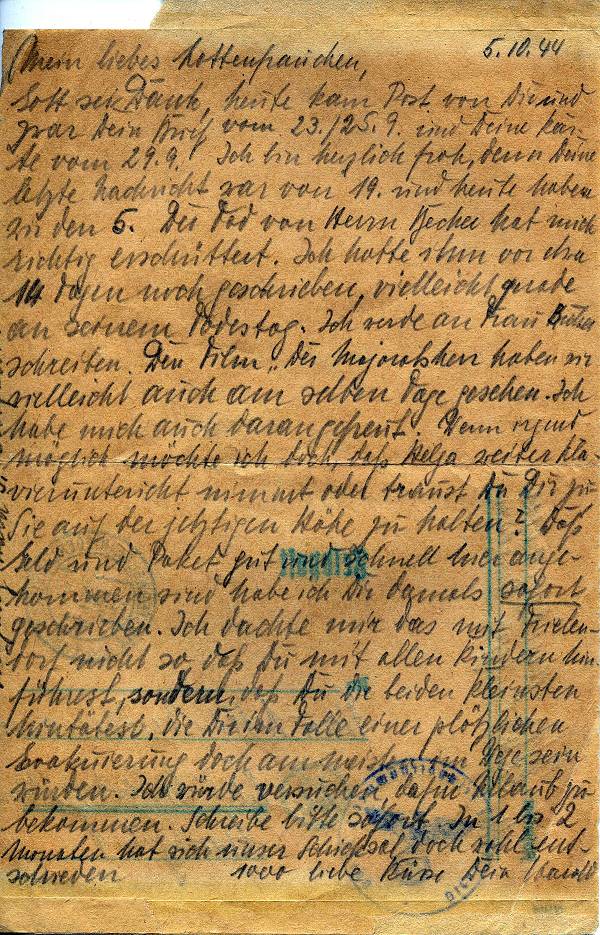 5.10.44
Mein liebes Lottenfrauchen,
Gott sei Dank, heute kam Post von Dir und
zwar Dein Brief vom 23./25.9. und Deine Kar-
te vom 29.9. Ich bin herzlich froh, denn Deine
letzte Nachricht war vom 19. und heute haben
wir den 5. Der Tod von Herrn Becker hat mich
richtig erschüttert. Ich hatte ihm vor etwa
14 Tagen noch geschrieben, vielleicht grade
an seinem Todestag. Ich werde an Frau
schreiben. Den Film „Der Majoratsherr haben wir
vielleicht auch am selben Tage gesehen. Ich
habe mich auch daran gefreut. Wenn irgend
möglich möchte ich doch, daß Helga weiter Kla-
vierunterricht nimmt oder traust Du Dir zu
Sie auf der jetzigen Höhe zu halten? Daß
Geld und Paket gut und schnell hier ange-
kommen sind habe ich Dir damals sofort
geschrieben. Ich dachte mir das mit
dorf nicht so, daß Du mit allen Kindern hin
führest, sondern, daß Du die beiden kleinsten
hinbrächtest, die Dir im Falle einer plötzlichen
Evakuierung doch am meisten im Wege sein
würden. Ich würde versuchen, dafür Urlaub zu
bekommen. Schreibe bitte sofort. In 1 bis 2
Monaten hat sich unser Schicksal doch wohl ent-
schieden 1000 liebe Küsse Dein Harald
Feldpost